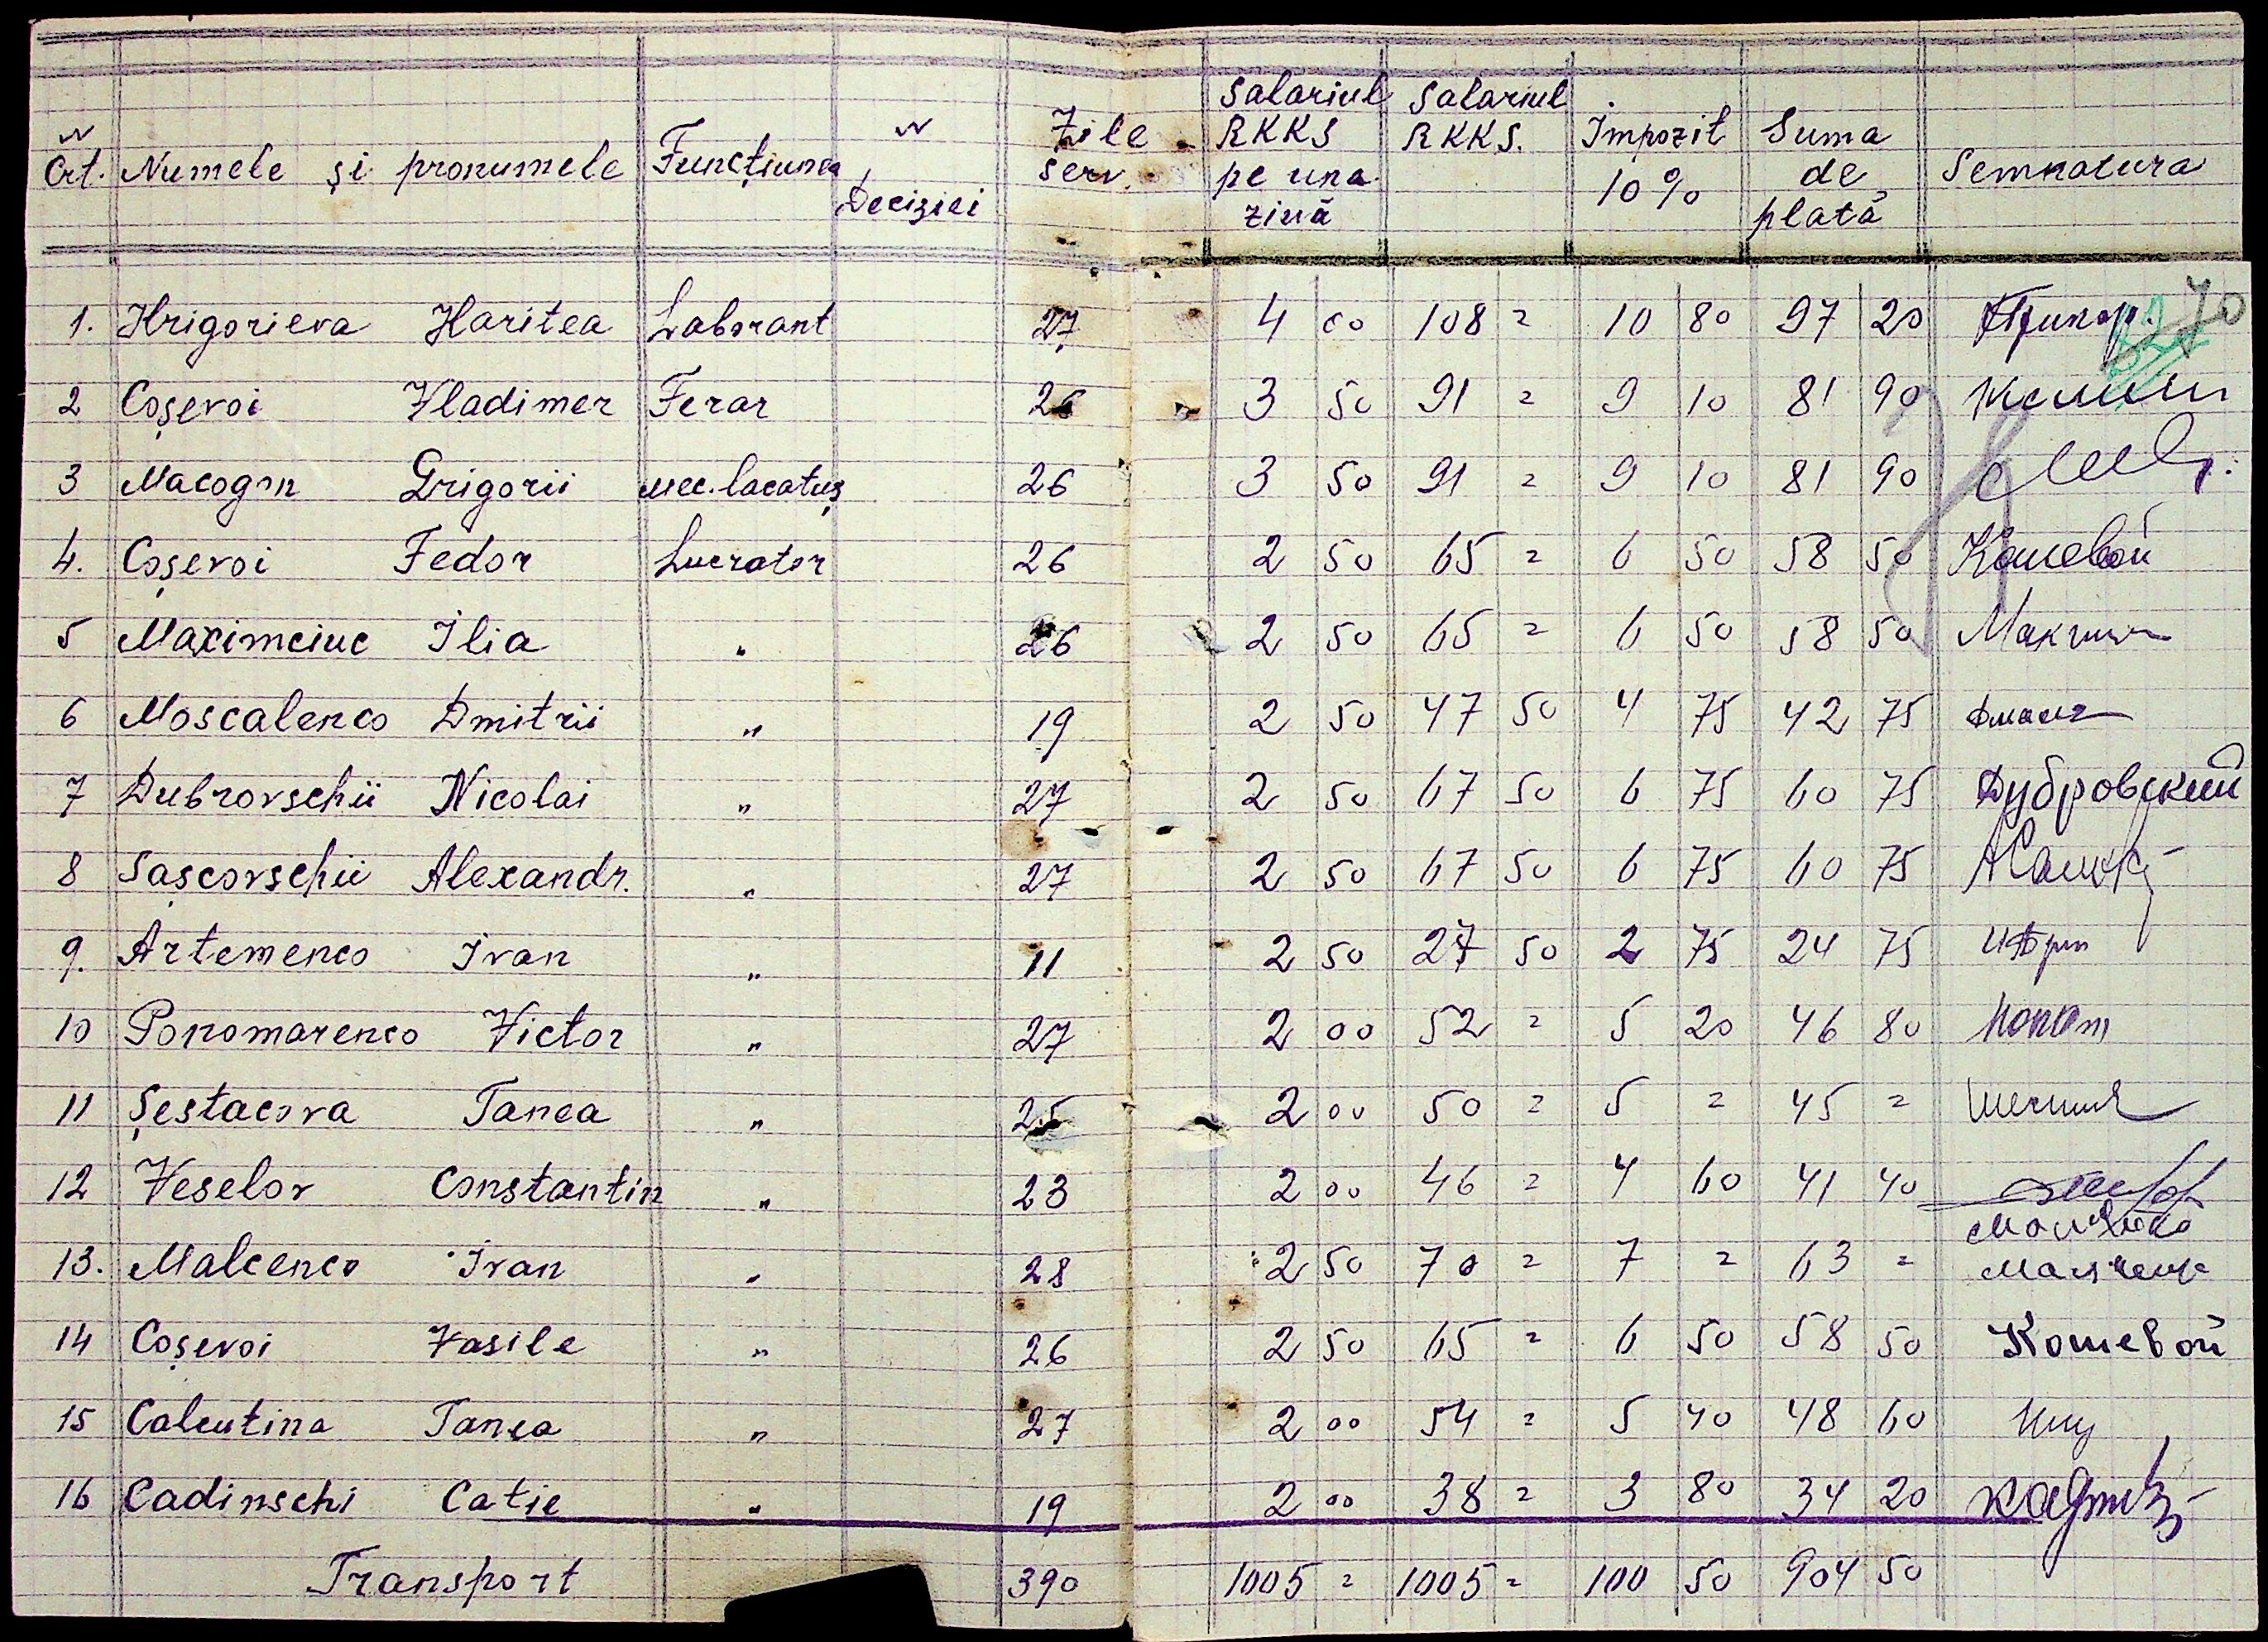 N Crt. Numele și pronumele Funcțiunea N Deciziei Zile serv. Salariul RKKS pe una ziuă Salariul RKKS. Impozit 10% Suma de plată Semnatura
70
1. Hrigorieva Haritea Laborant 27 4 00 108 = 10 80 97 20 Григор.
2 Coșevoi Vladimer Ferar 26 3 50 91 = 9 10 81 90
3 Macogon Grigorii mec. lacatuș 26 3 50 91 = 9 10 81 90
4. Coșevoi Fedor Lucrator 26 2 50 65 = 6 50 58 50 Кошевой
5 Maximciuc Ilia " 26 2 50 65 = 6 50 58 50
6 Moscalenco Dmitrii " 19 2 50 47 50 4 75 42 75
7 Dubrovschii Nicolai " 27 2 50 67 50 6 75 60 75 Дубровский
8 Sașcovschii Alexandr. " 27 2 50 67 50 6 75 60 75
9. Artemenco Ivan " 11 2 50 27 50 2 75 24 75
10 Ponomarenco Victor " 27 2 00 52 = 5 20 46 80
11 Șestacova Tanea " 25 2 00 50 = 5 = 45 =
12 Veselov Constantin " 23 2 00 46 = 4 60 41 40
13. Malcenco Ivan " 28 2 50 70 = 7 = 63 =
14 Coșevoi Vasile " 26 2 50 65 = 6 50 58 50 Кошевой
15 Calcutina Tanea " 27 2 00 54 = 5 40 48 60
16 Cadinschi Catie " 19 2 00 38 = 3 80 34 20
Transport 390 1005 = 1005 = 100 50 904 50